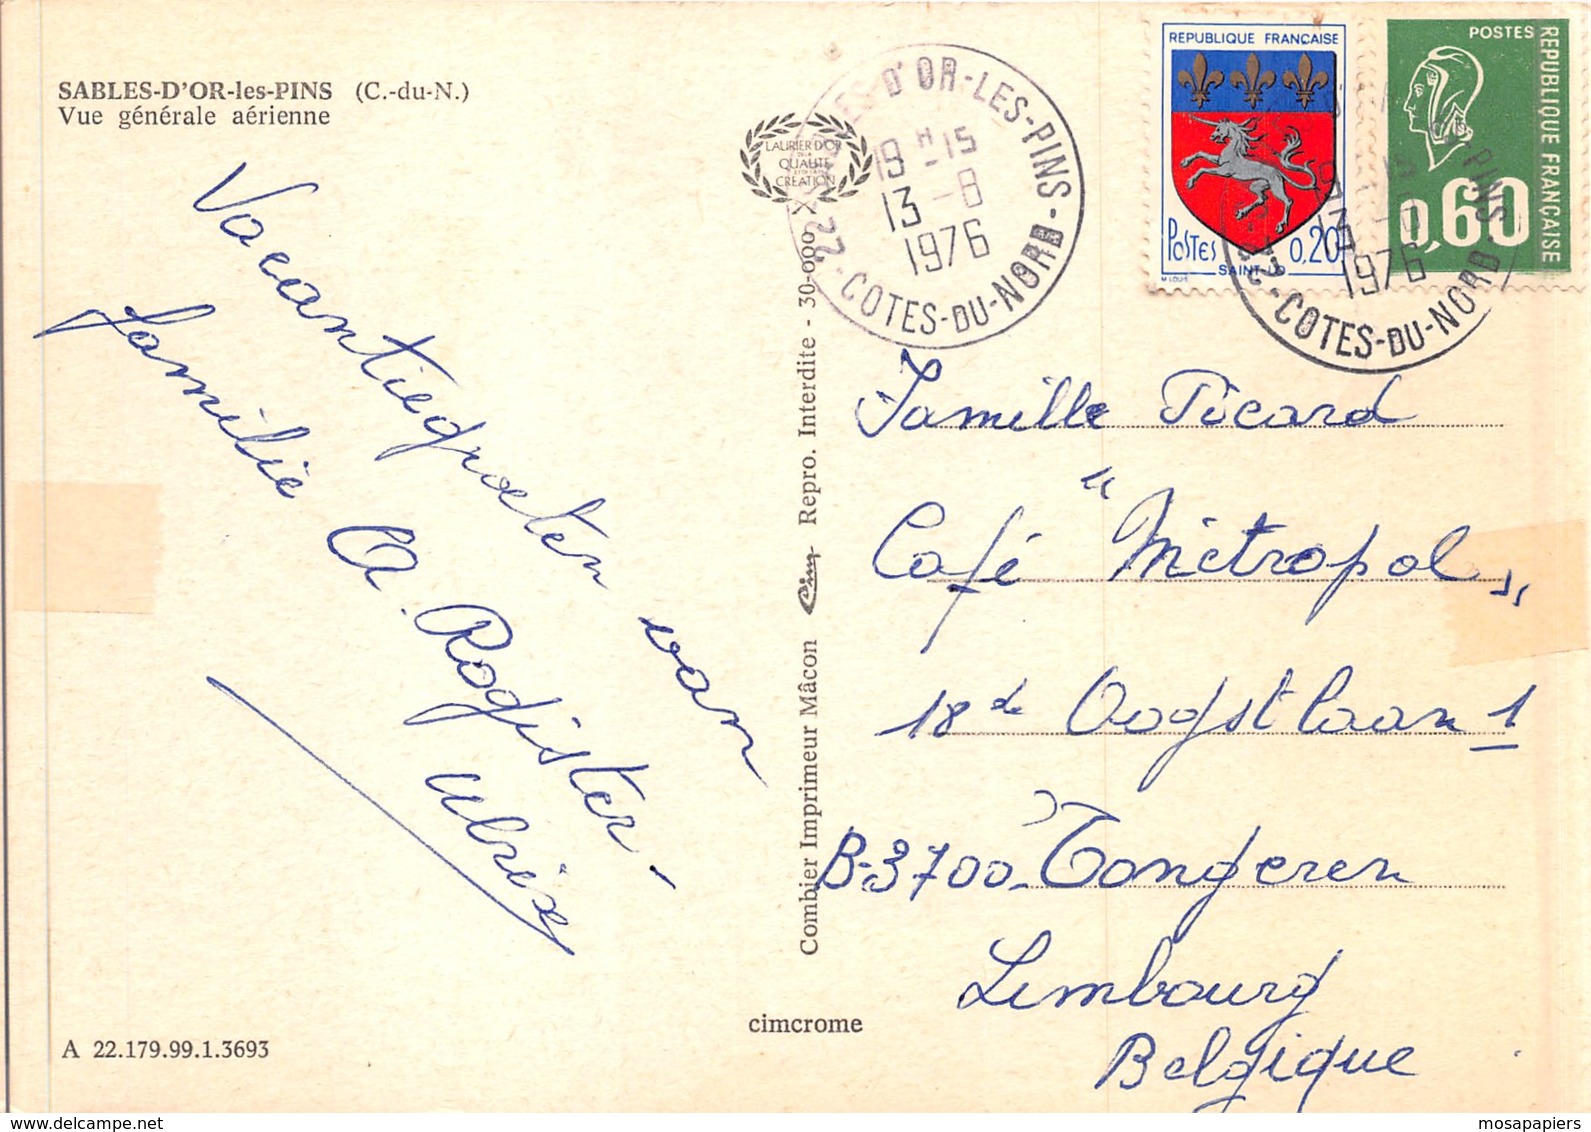 SABLES-D'OR-les-PINS (C.-du-N.)
Vue générale aérienne
Vacantiegroeten van
familie A. Rogister-
Ulrix
A 22.179.99.1.3693
cimcrome
Combier Imprimeur Mâcon Cim Repro. Interdite - 30-000 X
LAURIER D'OR
DE LA
QUALITÉ
CRÉATION
22 - SABLES-D'OR-LES-PINS - COTES-DU-NORD
19 H -15
13 -8
1976
REPUBLIQUE FRANÇAISE
POSTES
0,20
SAINT-LO
POSTES
REPUBLIQUE FRANÇAISE
0,60
PINS
22 - COTES-DU-NORD
1976
Famille Picard
Café "Métropol"
18de Oogstlaan 1
B-3700-Tongeren
Limbourg
Belgique
mosapapiers